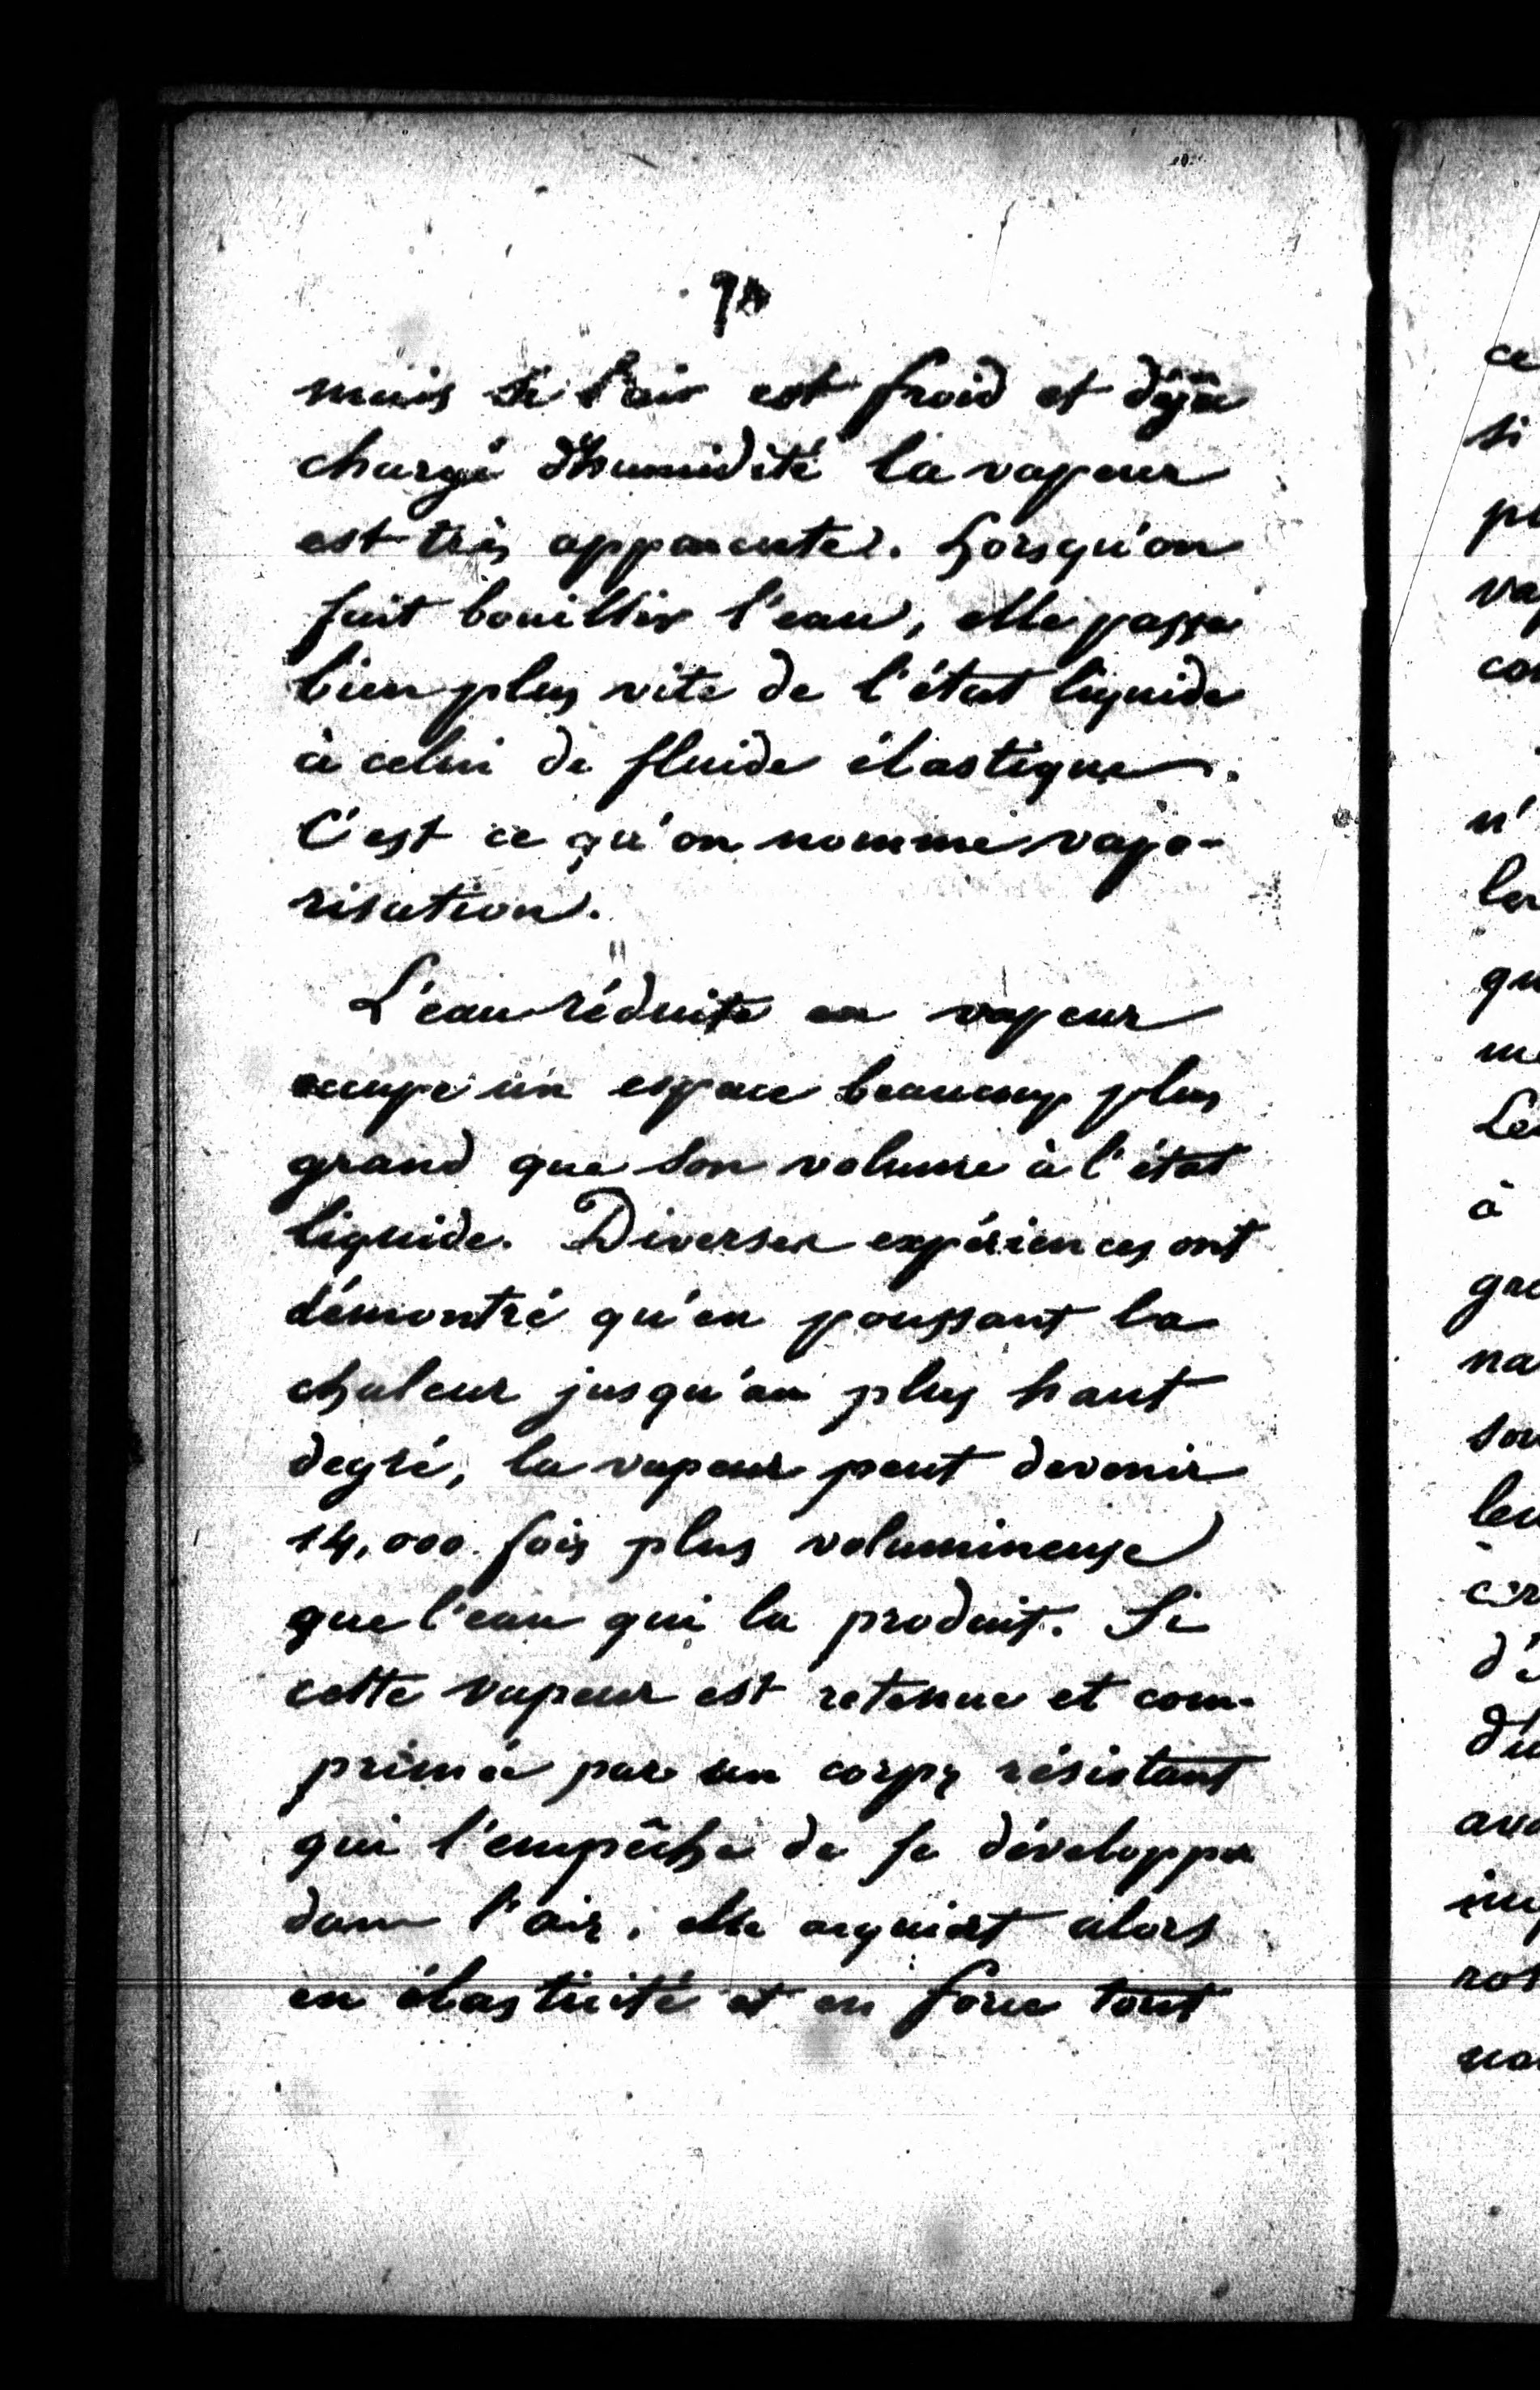 mais si l'air est froid et déjà
chargé d'humidité la vapeur
est très apparente. Lorsqu'on
fait bouillir l'eau, elle passe
bien plus vite de l'état liquide
à celui de fluide élastique.
C'est ce qu'on nomme vapo-
risation.
L'eau réduite en vapeur
occupe un espace beaucoup plus
grand que son volume à l'état
liquide. Diverses expériences ont
démontré qu'en poussant la
chaleur jusqu'au plus haut
degré, la vapeur peut devenir
14,000 fois plus volumineuse
que l'eau qui la produit. Si
cette vapeur est retenue et com-
primée par un corps résistant
qui l'empêche de se développer
dans l'air, elle acquiert alors
en élasticité et en force tout
ce
si
n'
à